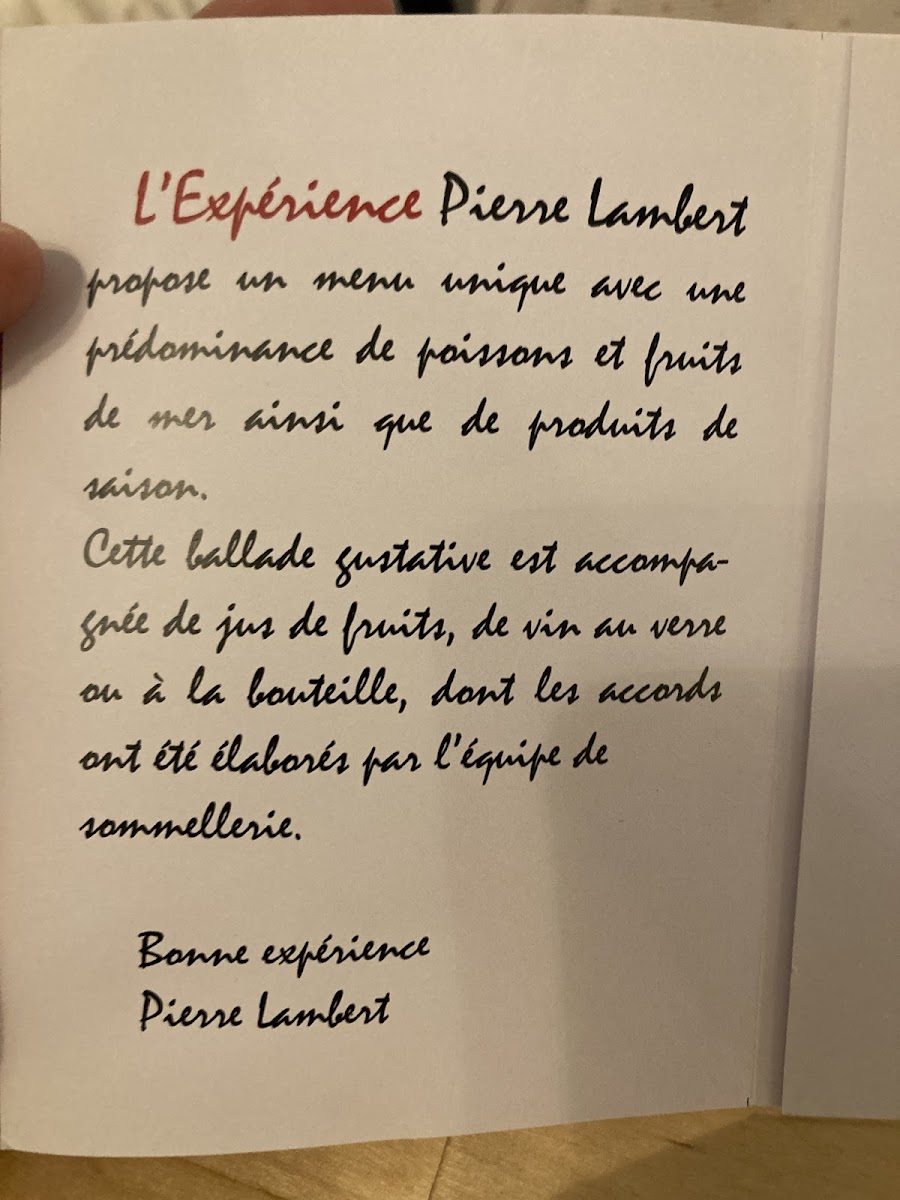 L'Expérience Pierre Lambert
propose un menu unique avec une
prédominance de poissons et fruits
de mer ainsi que de produits de
saison.
Cette ballade gustative est accompa-
gnée de jus de fruits, de vin au verre
ou à la bouteille, dont les accords
ont été élaborés par l'équipe de
sommellerie.
Bonne expérience
Pierre Lambert